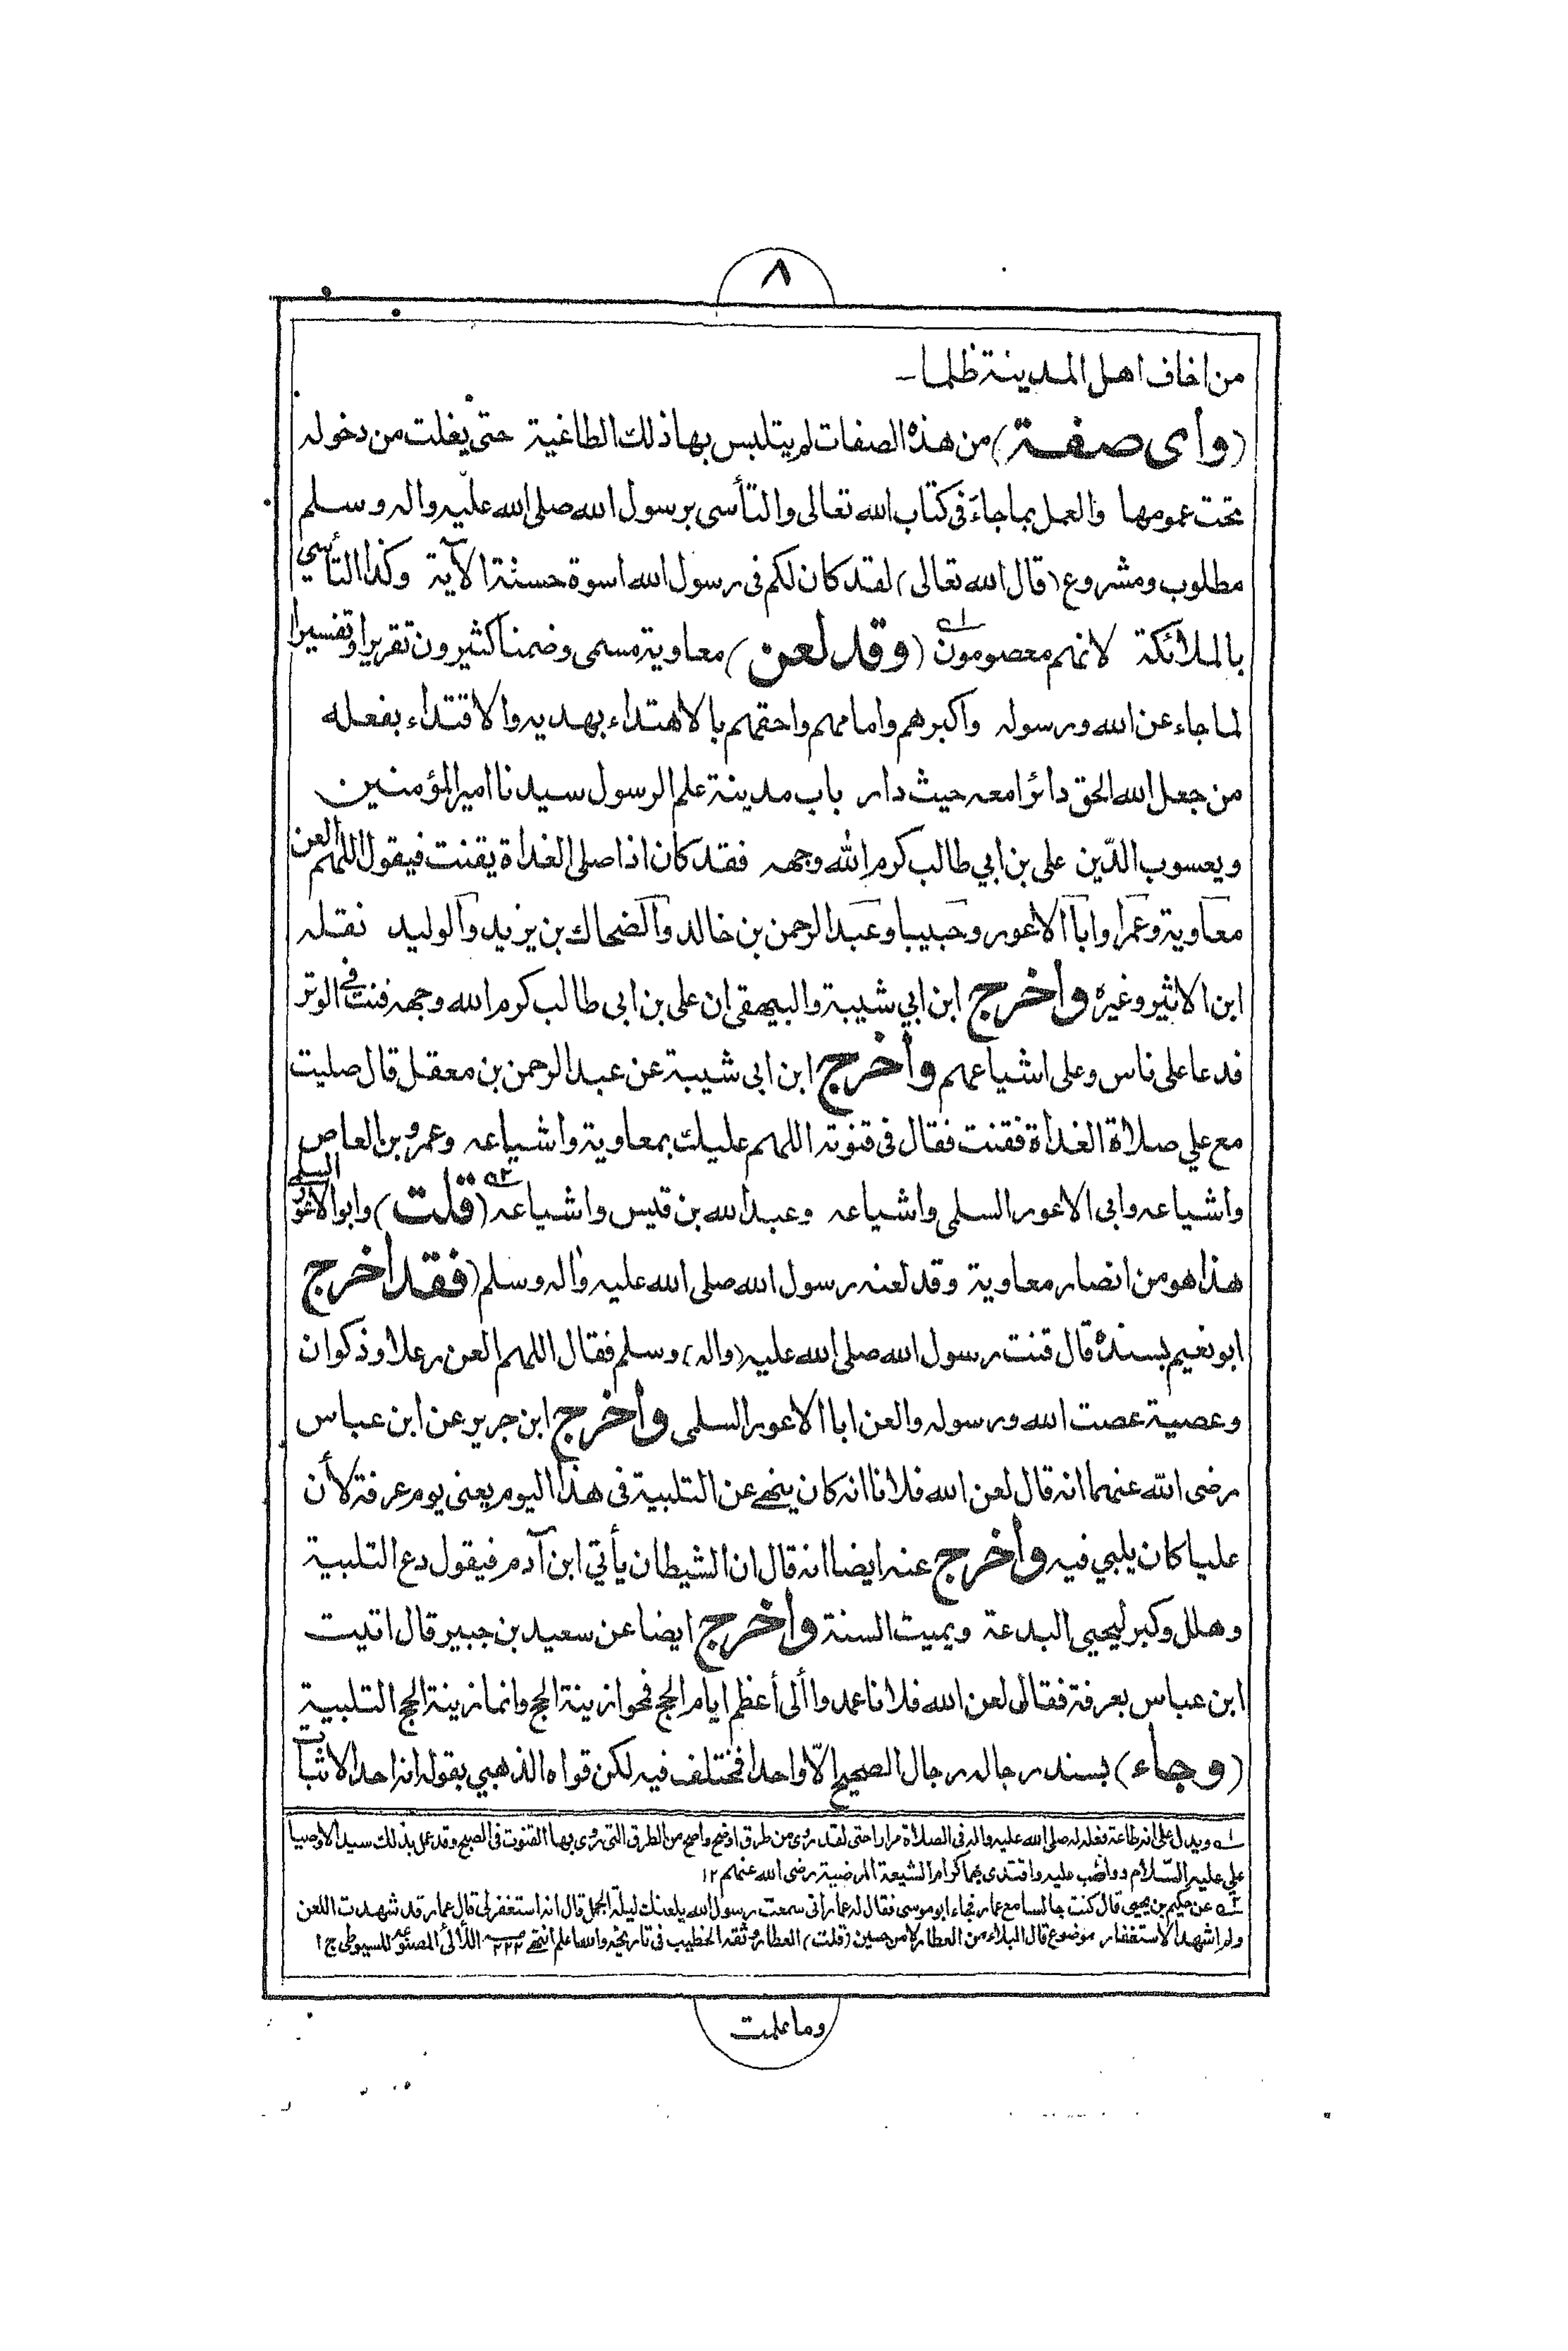 ٨
من اخاف اهل المدينة ظلما ـ
(وأى صفة) من هذه الصفات لم يتلبس بها ذلك الطاغية حتى يفلت من دخوله
تحت عمومها والعمل بما جاءَ فى كتاب الله تعالى والتأسى برسول الله صلى الله عليه واله وسلم
مطلوب ومشروع (قال الله تعالى) لقد كان لكم فى رسول الله اسوة حسنة الآية وكذا التأسي
بالملائكة لانهم معصومون ١ (وقد لعن) معاوية مسمى وضمنا كثيرون تقريرا وتفسيرا
لما جاء عن الله ورسوله واكبرهم وامامهم واحقهم بالاهتداء بهديه والاقتداء بفعله
من جعل الله الحق دائرا معه حيث دار باب مدينة علم الرسول سيدنا امير المؤمنين
ويعسوب الدّين على بن ابي طالب كرم الله وجهه فقد كان اذا صلى الغداة يقنت فيقول اللهم العن
معاوية وعمرا وابا الاعور وحبيبا وعبد الرحمن بن خالد والضحاك بن يزيد والوليد نقله
ابن الاثير وغيره وأخرج ابن ابي شيبة والبيهقى ان على بن ابى طالب كرم الله وجهه قنت فى الوتر
فدعا على ناس وعلى اشياعهم وأخرج ابن ابى شيبة عن عبد الرحمن بن معقل قال صليت
مع علي صلاة الغداة فقنت فقال فى قنوته اللهم عليك بمعاوية واشياعه وعمرو بن العاص
واشياعه وابى الاعور السلمى واشياعه وعبد الله بن قيس واشياعه ٢ (قلت) وابو الاعور السلمى
هذا هو من انصار معاوية وقد لعنه رسول الله صلى الله عليه واله وسلم (فقد أخرج
ابو نعيم بسنده قال قنت رسول الله صلى الله عليه (واله) وسلم فقال اللهم العن رعلا وذكوان
وعصية عصت الله ورسوله والعن ابا الاعور السلمى وأخرج ابن جرير عن ابن عباس
رضى الله عنهما انه قال لعن الله فلانا انه كان ينهى عن التلبية فى هذا اليوم يعنى يوم عرفة لأن
عليا كان يلبي فيه وأخرج عنه ايضا انه قال ان الشيطان يأتي ابن آدم فيقول دع التلبية
وهلل وكبر ليحيي البدعة ويميت السنة وأخرج ايضا عن سعيد بن جبير قال اتيت
ابن عباس بعرفة فقال لعن الله فلانا عمدوا ألى أعظم ايام الحج فمحوا زينة الحج وانما زينة الحج التلبية
(وجاء) بسند رجاله رجال الصحيح الّا واحدا فمختلف فيه لكن قواه الذهبي بقوله انه احد الاثبات
١ ويدل على انه طاعة فعله له صلى الله عليه واله فى الصلاة مرارا حتى لقد روى من طرق اوضح واصح من الطرق التى روى بها القنوت فى الصبح وقد عمل بذلك سيد الاوصيا
علي عليه السّلام وواظب عليه واقتدى بهما كرام الشيعة المرضية رضى الله عنهم ١٢
٢ عن حكيم بن يحيى قال كنت جالسا مع عمار فجاء ابو موسى فقال له عمار انى سمعت رسول الله يلعنك ليلة الجمل قال انه استغفر لى قال عمار قد شهدت اللعن
ولم اشهد الاستغفار موضوع قال البلاء من العطار لا من حسين (قلت) العطار وثقه الخطيب فى تاريخه والله اعلم انتهى ٢٢٢ اللآلى المصنوعه للسيوطى ج ١
وما علمت